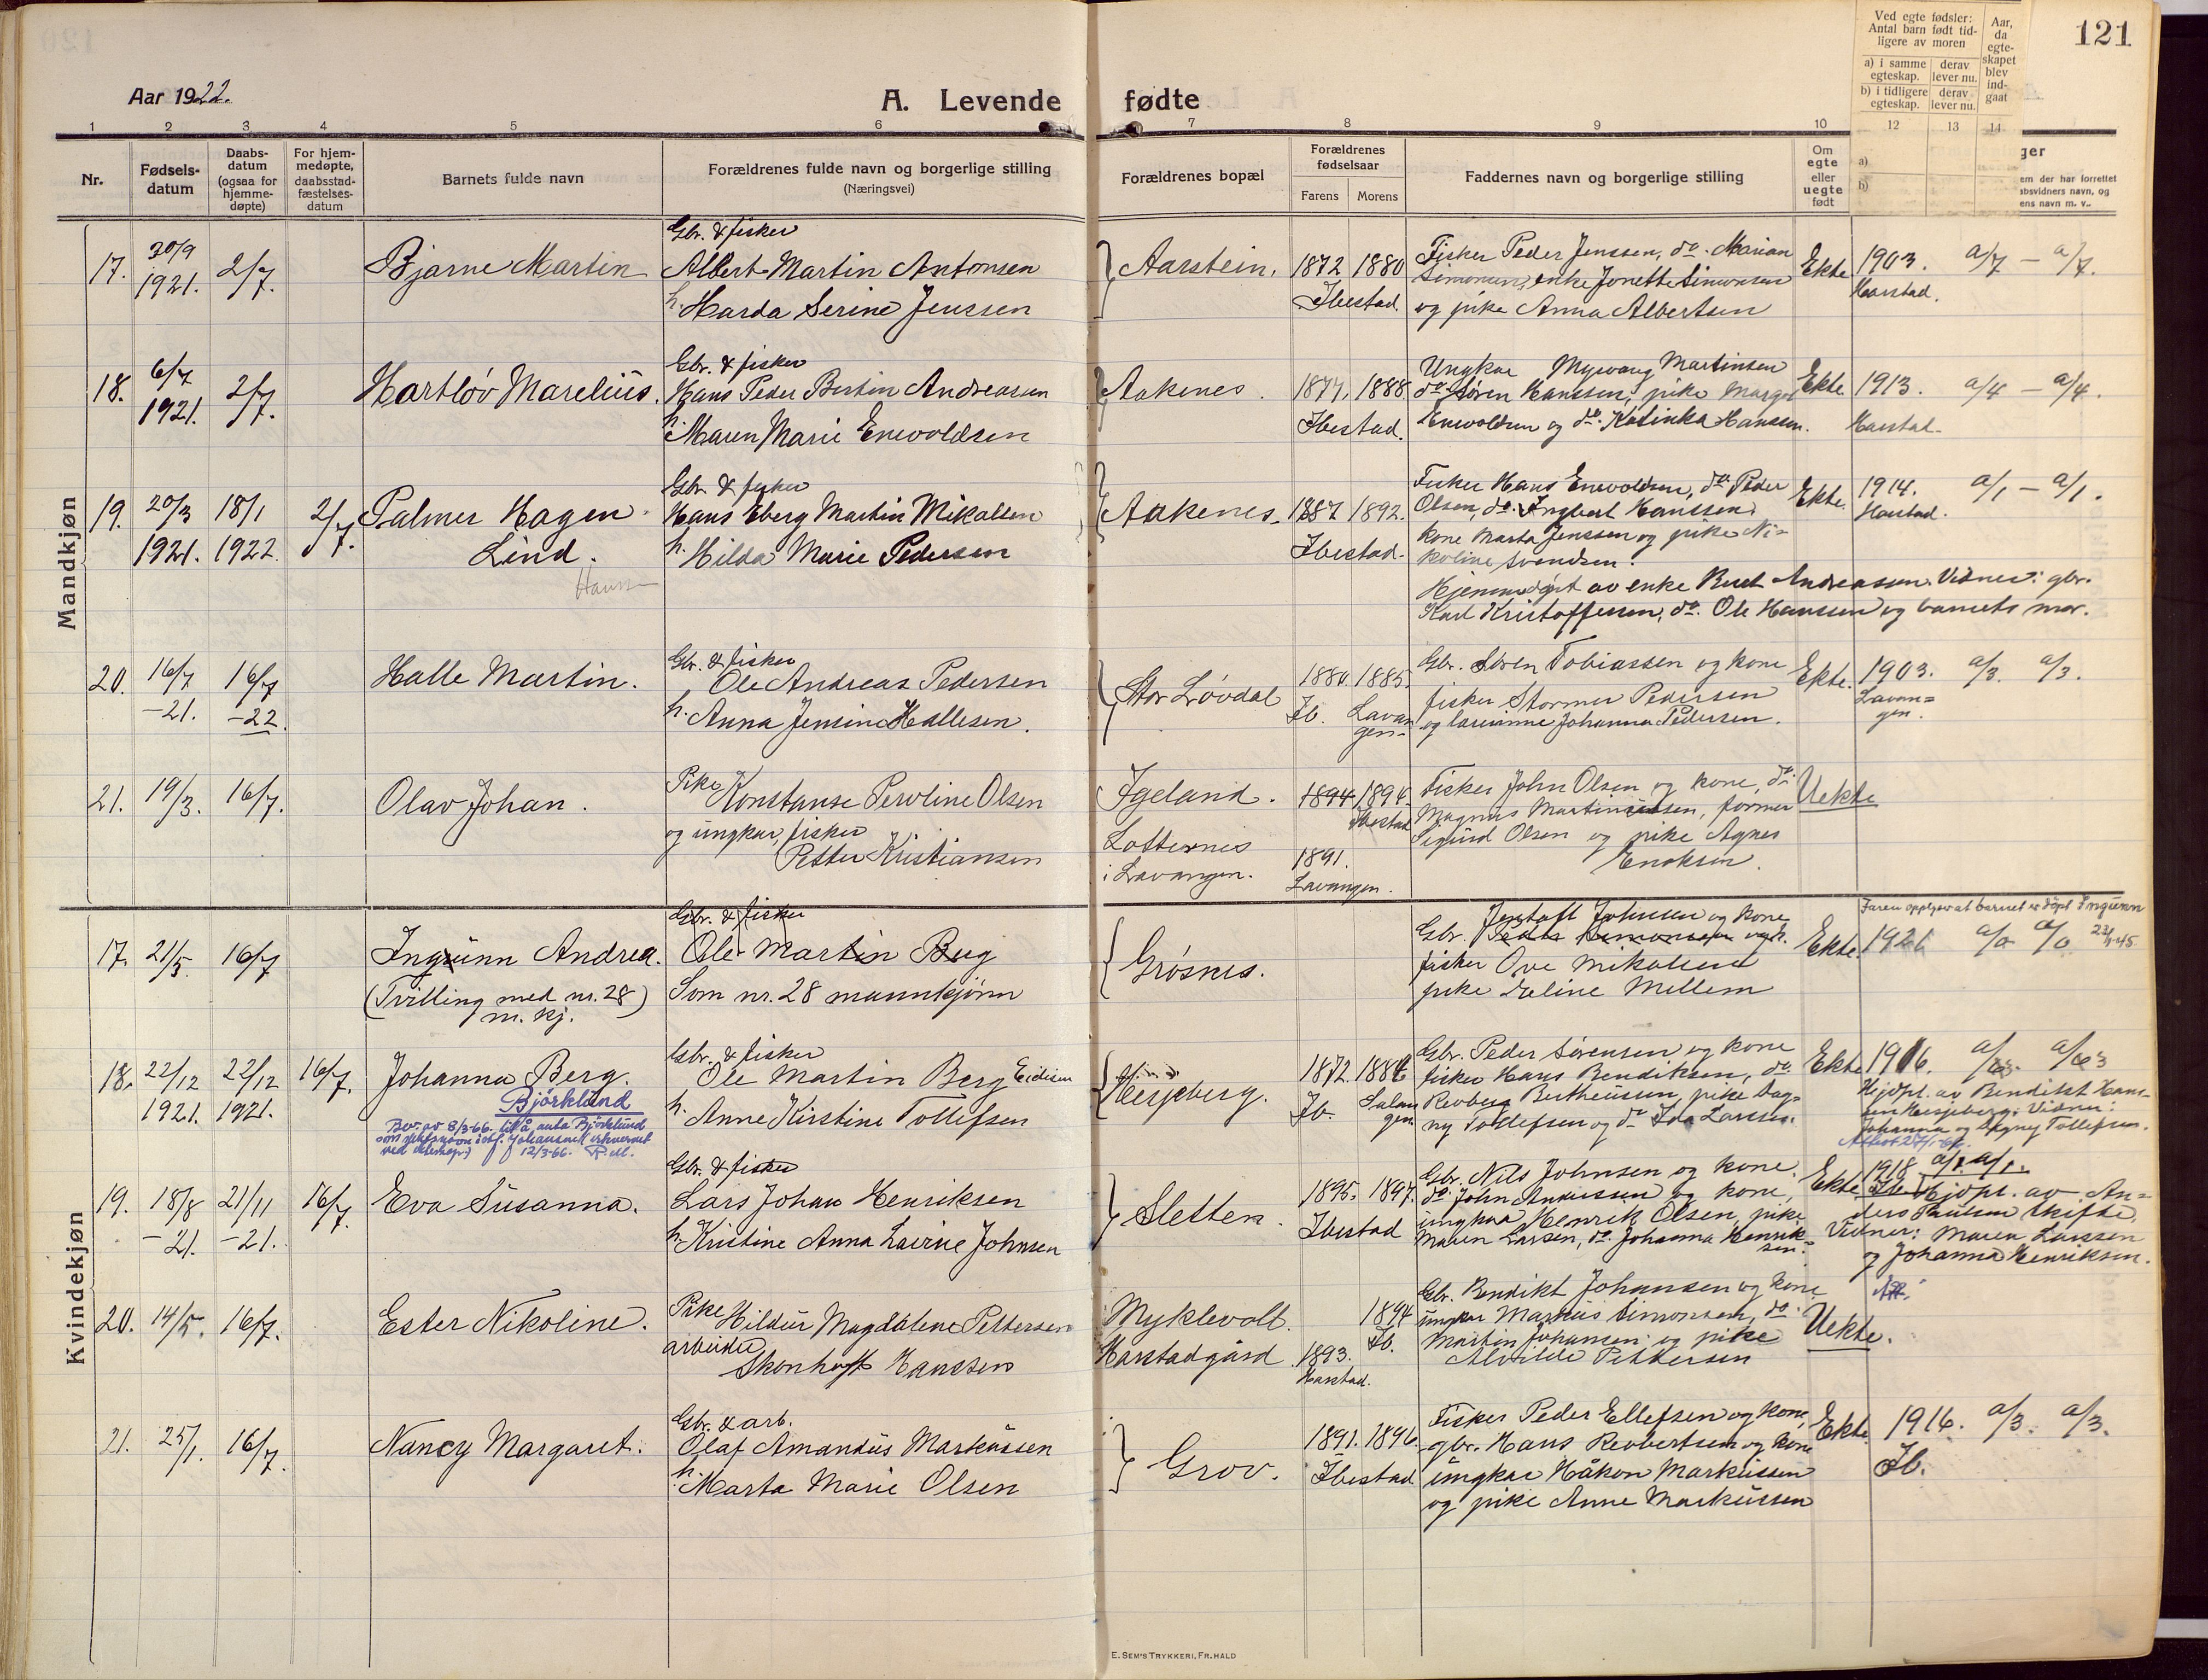 Aar 1922.
A. Levende fødte
121
Ved egte fødsler:
Antal barn født tid-
ligere av moren
a) i samme egteskap.
derav lever nu.
b) i tidligere egteskap.
derav lever nu.
Aar, da egte-skapet blev ind-gaat
1 2 3 4 5 6 7 8 9 10 12 13 14
Nr.
Fødsels-datum
Daabs-datum (ogsaa for hjemme-døpte)
For hjem-medøpte, daabsstad-fæstelses-datum
Barnets fulde navn
Forældrenes fulde navn og borgerlige stilling
(Næringsvei)
Forældrenes bopæl
Forældrenes fødselsaar
Farens Morens
Faddernes navn og borgerlige stilling
Om egte eller uegte født
a)
b)
ger
em der har forrettet
absvidners navn, og
ens navn m. v..
Mandkjøn
17. 20/9 1921. 2/7.
Bjarne Martin
Gbr. & fisker
Albert Martin Antonsen
h. Harda Serine Jenssen
Aarstein.
1872 1880
Ibestad.
Fisker Peder Jenssen, do. Marian
Simonsen, enke Jonette Simonsen
og pike Anna Albertsen
Ekte
1903. a/7 – a/7.
Harstad.
18. 6/7 1921. 2/7.
Hartløv Marelius.
Gbr. & fisker
Hans Peder Bertin Andreassen
h. Maren Marie Enevoldsen
Aakenes.
1877. 1888.
Ibestad.
Ungkar Myrvang Martinsen
do. Søren Hanssen, pike Margot
Enevoldsen og do. Katinka Hanssen.
Ekte.
1913. a/4 – a/4.
Harstad.
19. 20/3 1921. 18/1 1922. 2/7.
Palmer Hagen
Lind.
Hanss
Gbr. & fisker
Hans Eberg Martin Mikalsen
h. Hilda Marie Pedersen
Aakenes.
1887 1892.
Ibestad.
Fisker Hans Enevoldsen, do. Peder
Olsen, do. Ingbert Hanssen,
kone Marta Jenssen og pike Ni=
koline Svendsen.
Hjemmedøpt av enke Berit Andreassen. Vidner: gbr.
Karl Kristoffersen, do. Ole Hanssen og barnets mor.
Ekte.
1914. a/1 – a/1.
Harstad.
20. 16/7 –21. 16/7 –22.
Halle Martin.
Gbr. & fisker
Ole Andreas Pedersen
h. Anna Jensine Hallesen.
Stor Løvdal
1880. 1885.
Ib. Lavan
gen.
Gbr. Søren Tobiassen og kone
fisker Stormer Pedersen
og Johanna Pedersen.
Ekte.
1903. a/3. a/3.
Lavan=
gen.
21. 19/3. 16/7.
Olav Johan.
Pike Konstanse Peroline Olsen
og ungkar, fisker
Petter Kristiansen
Igeland.
Lotternes
i Lavangen.
1894 1894.
Ibestad
1891.
Lavangen.
Fisker John Olsen og kone, do.
Magnus Martinussen, former
Sigurd Olsen og pike Agnes
Enoksen.
Uekte
Kvindekjøn
17. 21/5. 16/7
Ingunn Andrea.
(Tvilling med nr. 28)
m. kj.
Gbr. & fisker
Ole Martin Bug
Som nr. 28 mannkjønn
Grøsnes.
Gbr. Jentoft Johnsen og kone
Peder Simonsen og k.
fisker Ove Mikalsen
pike Daline Mellem
Ekte.
Faren oppgjev at barnet er døpt Ingunn
1921 a/0 a/0 22/1-45
18. 22/12 1921. 22/12 1921. 16/7.
Johanna Berg.
Bjørklund
Bev. av 8/3-66. til å anta Bjørklund
12/3-66. R.M.
Gbr. & fisker
Ole Martin Berg
h. Anne Kirstine Tollefsen
Hesjeberg.
1872. 1886
Ib. Salan
gen
Gbr. Peder Sørensen og kone
fisker Hans Bendiksen, do.
Bertheussen, pike Dag=
ny Tollefsen og do Ida Larsen.
Ekte
1916. a/3. a/3
Hjdpt. av Benedikt Han=
sen Hesjeberg; Vidner:
Johanna og Dagny Tollefsen.
19. 18/8 –21. 21/11 –21. 16/7.
Eva Susanna.
Gbr. & fisker
Lars Johan Henriksen
h. Kristine Anna Lavine Johnsen
Sletten.
1895. 1897.
Ibestad
Gbr. Nils Johnsen og kone
do. John Andreassen og kone,
ungkar Henrik Olsen, pike
Maren Larsen, do. Johanna Henrik=
sen.
Ekte
1918 a/1. a/1.
Ib. Hjdpt. av An=
ders Paulsen Skifte.
Vidner: Maren Larssen
og Johanna Henriksen.
20. 14/5. 16/7.
Ester Nikoline.
Pike Hildur Magdalene Pettersen
arbeider
Skonhoft Hanssen
Myklevoll.
Harstadgård
1894
Ib.
1893.
Harstad.
Gbr. Bendikt Johansen og kone
ungkar Markus Simonsen, do.
Martin Johansen og pike
Alvilde Pettersen
Uekte.
21. 25/1. 16/7.
Nancy Margaret.
Gbr. & arb.
Olaf Amandus Markussen
h. Marta Marie Olsen
Grov.
1891. 1896.
Ibestad.
Fisker Peder Ellefsen og kone,
gbr. Hans Robertsen og kone
ungkar Håkon Markussen
og pike Anne Markussen
Ekte.
1916. a/3. a/3.
Ib.
E. SEM'S TRYKKERI, FR.HALD